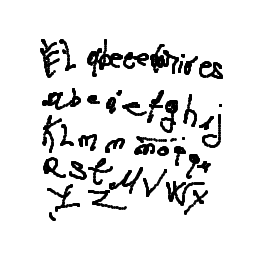 El abecedario es
a b c d e f g h i j
K L m n ñ o p q r
R S t U V W X
Y Z